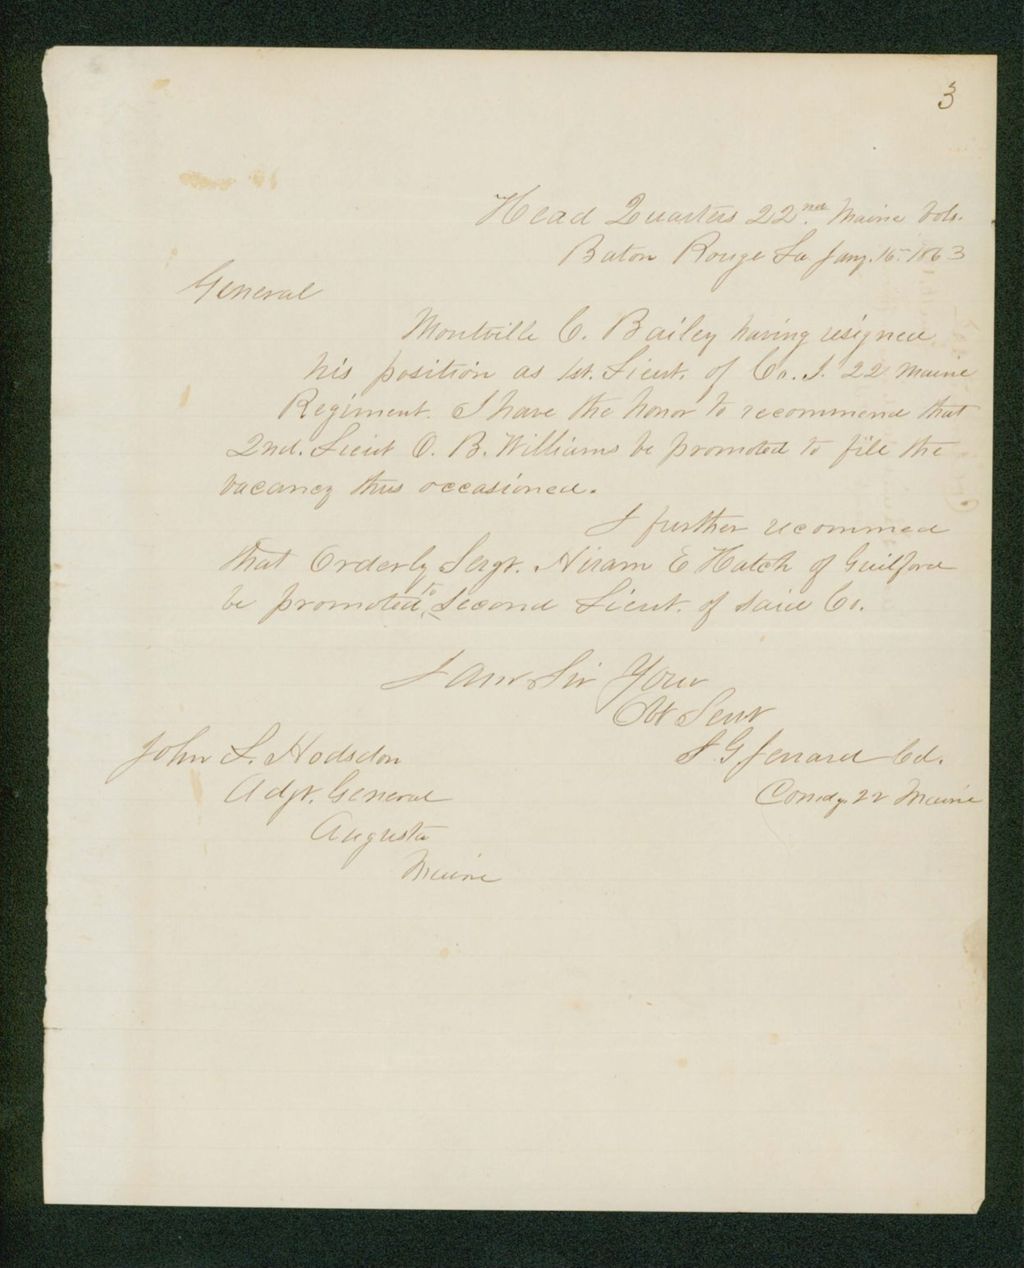 3
Head Quarters 22nd. Maine Vols.
Baton Rouge La Jany. 16. 1863
General
Montville C. Bailey having resigned
his position as 1st. Lieut. of Co. I. 22 Maine
Regiment. I have the honor to recommend that
2nd. Lieut O. B. Williams be promoted to fill the
vacancy thus occasioned.
I further recommed
that Orderly Sergt. Hiram E Hatch of Guilford
be promoted to Second Lieut. of said Co.
I Am Sir Your
Obt Servt
S. G. Jerrard Col.
Comdg. 22 Maine
John L. Hodsdon
Adjt. General
Augusta
Maine